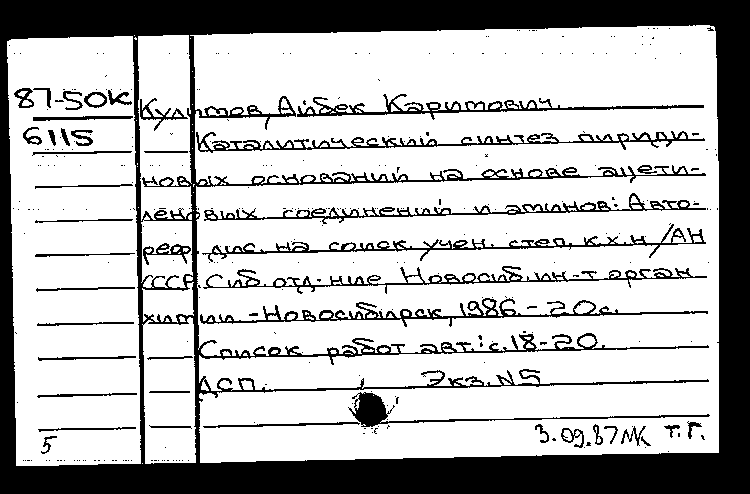 87-50К Кулитов, Айбек Каритович.
6115 Каталитический синтез пириди-
новых оснований на основе ацети-
леновых соединений и аминов: Авто-
реф. дис. на соиск. учен. степ. к.х.н/АН
СССР. Сиб. отд-ние, Новосиб. ин-т орган
химии -Новосибирск, 1986.-20с.
Список работ авт.: с.18-20.
ДСП. Экз. N5
5 3.09.87 МК Т.Г.